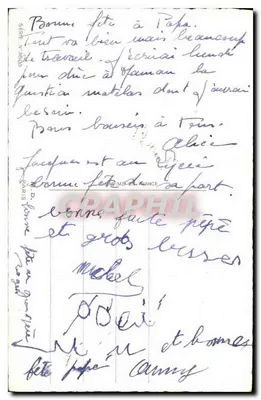 Bonne fête à Papa.
Tout va bien mais beaucoup
de travail. J'écrirai lundi
pour dire à Maman la
question matelas dont j'aurai
besoin.
Bons baisers à Tous.
Alice
Jacques est au Lycée
bonne fête de sa part.
bonne faite pépé
et grobs bisser
Michel
et bonnes
fête pépé
anny